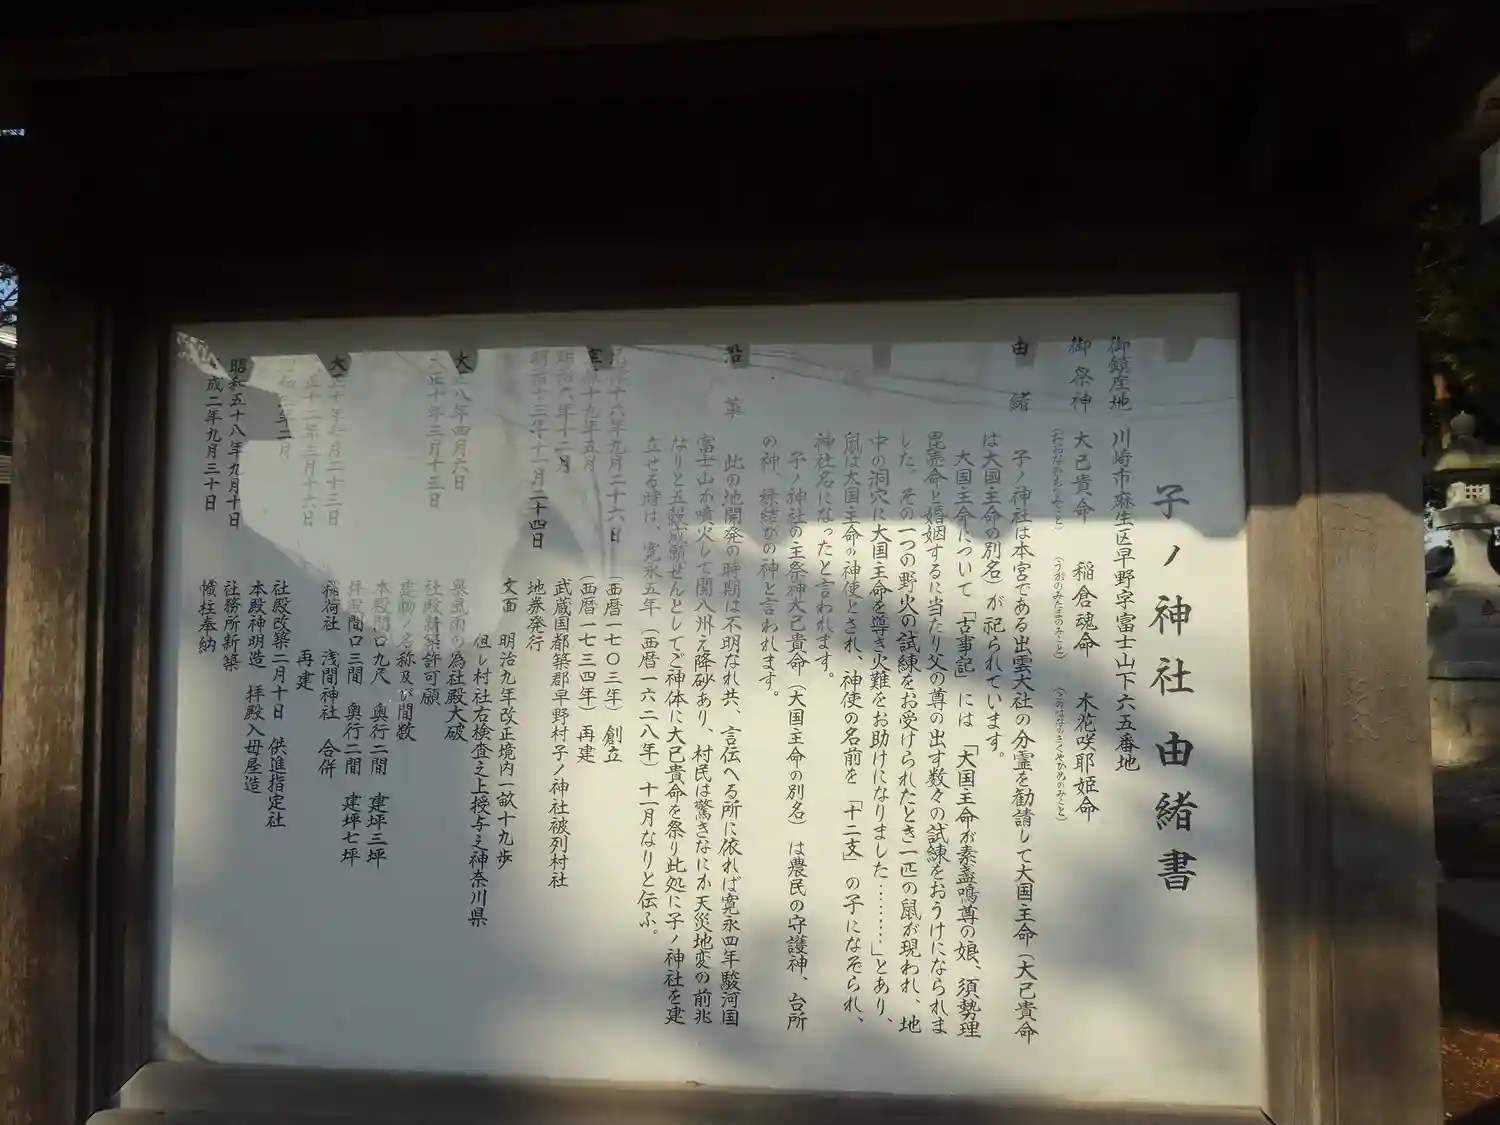 子ノ神社由緒書
御鎮座地 川崎市麻生区早野字富士山下六五番地
御祭神 大己貴命 稲倉魂命 木花咲耶姫命
(おおなむちのみこと) (うかのみたまのみこと) (このはなのさくやひめのみこと)
由緒 子ノ神社は本宮である出雲大社の分霊を勧請して大国主命(大己貴命
は大国主命の別名)が祀られています。
大国主命について「古事記」には「大国主命が素盞鳴尊の娘、須勢理
毘売命と婚姻するに当たり父の尊の出す数々の試練をおうけになられま
した。その一つの野火の試練をお受けられたとき一匹の鼠が現われ、地
中の洞穴に大国主命を導き火難をお助けになりました………」とあり、
鼠は大国主命の神使とされ、神使の名前を「十二支」の子になぞられ、
神社名になったと言われます。
子ノ神社の主祭神大己貴命(大国主命の別名)は農民の守護神、台所
の神、縁結びの神と言われます。
沿革 此の地開発の時期は不明なれ共、言伝へる所に依れば寛永四年駿河国
富士山が噴火して関八州え降砂あり、村民は驚きなにか天災地変の前兆
なりと五穀成願せんとしてご神体に大己貴命を祭り此処に子ノ神社を建
立せる時は、寛永五年(西暦一六二八年)十一月なりと伝ふ。
元禄十六年九月二十六日 (西暦一七〇三年)創立
享保十九年五月 (西暦一七三四年)再建
明治六年十二月 武蔵国都築郡早野村子ノ神社被列村社
明治十三年十一月二十四日 地券発行
文面 明治九年改正境内一畝十九歩
但し村社右検査之上授与之神奈川県
大正八年四月六日 暴風雨の為社殿大破
大正十年三月十三日 社殿新築許可願
建物ノ名称及び間数
本殿間口九尺 奥行二間 建坪三坪
拝殿間口三間 奥行二間 建坪七坪
大正十年七月二十二日 稲荷社 浅間神社 合併
大正十二年三月十六日 再建
年二月 社殿改築二月十日 供進指定社
本殿神明造 拝殿入母屋造
昭和五十八年九月十日 社務所新築
成二年九月三十日 幟柱奉納